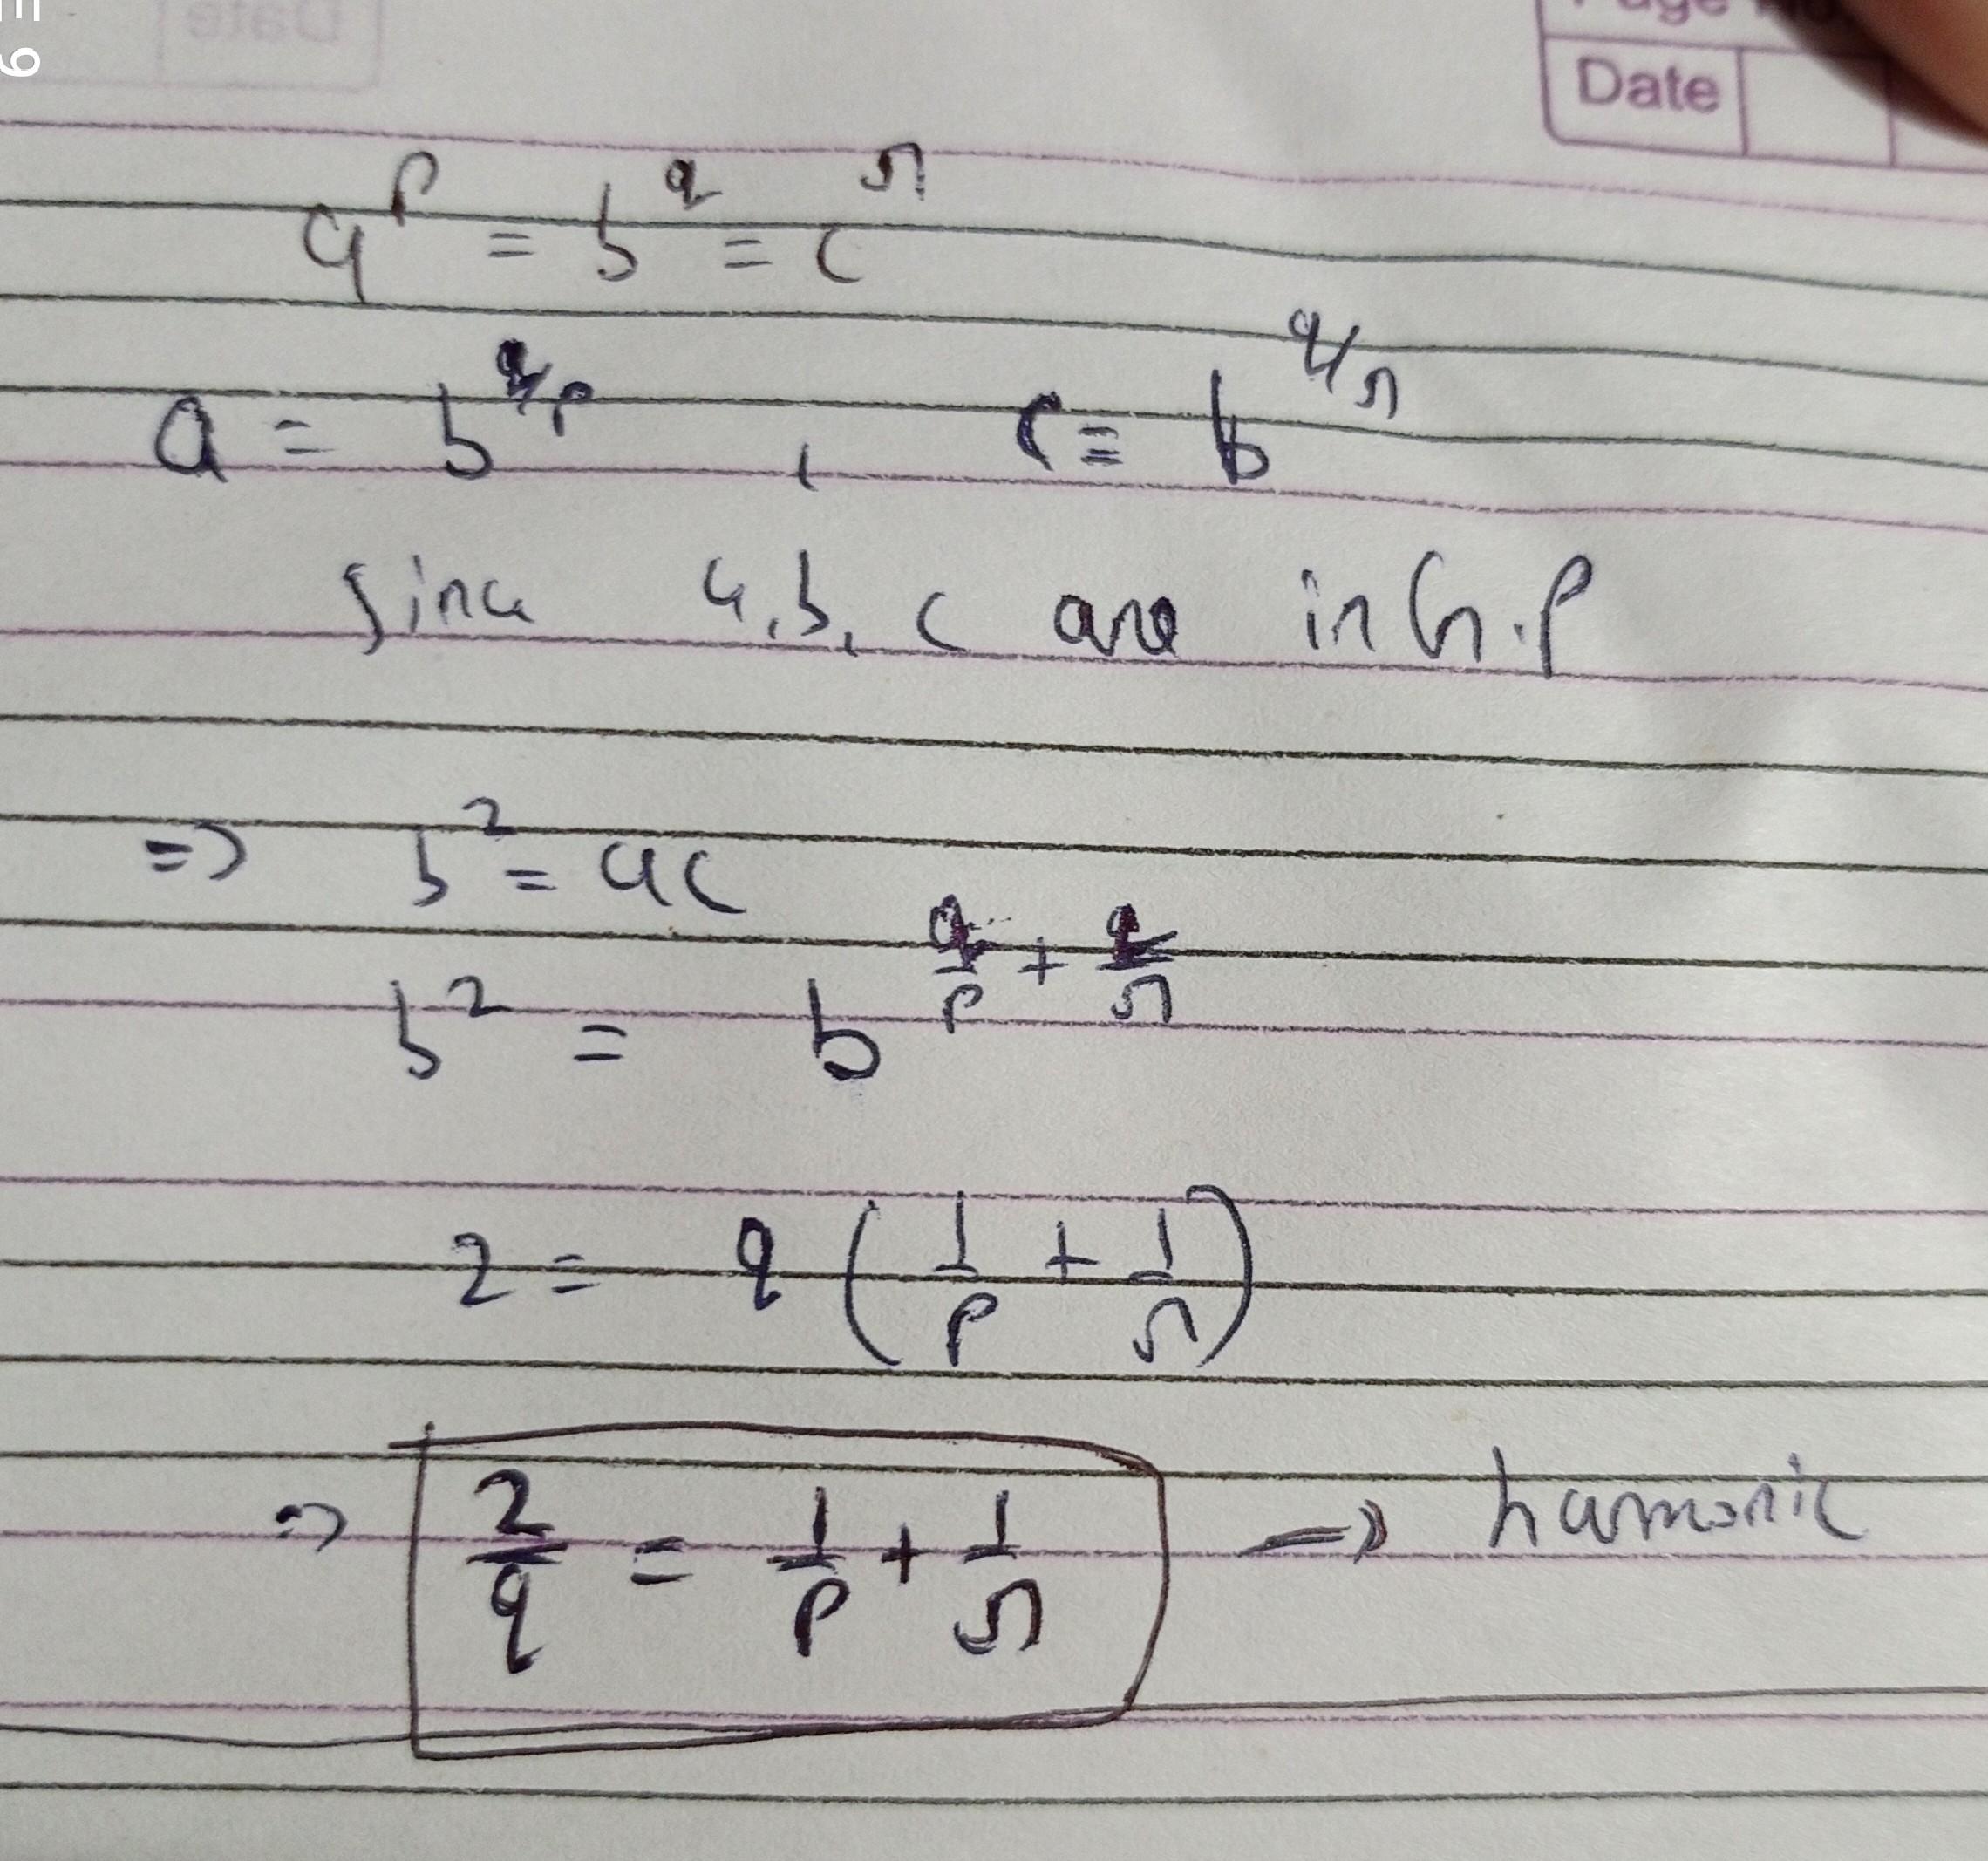 Date
a^p = b^q = c^r
a = b^{q/p} , c = b^{q/r}
Since a, b, c are in G.P
=> b^2 = ac
b^2 = b^{q/p + q/r}
2 = q (1/p + 1/r)
=> 2/q = 1/p + 1/r → harmonic